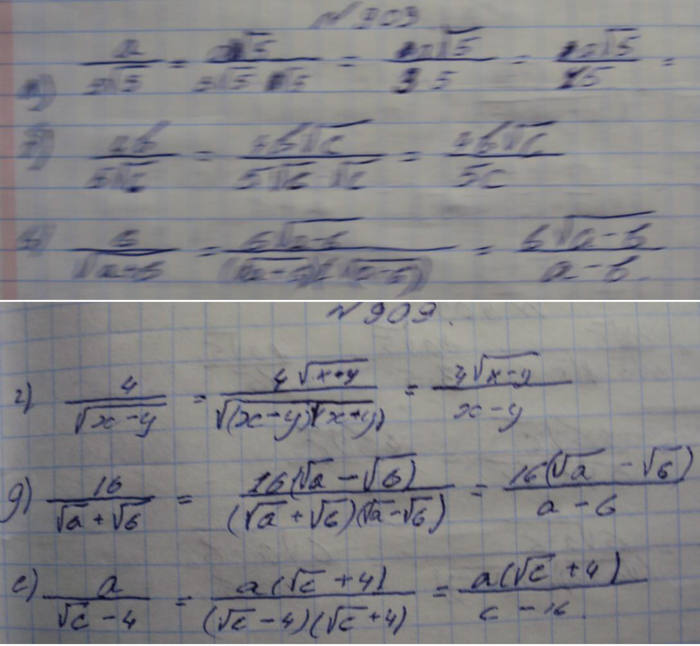 №909
a/(3√5) = a√5/(3√5·√5) = a√5/(3·5) = a√5/15 =
/(5√c) = b√c/(5√c·√c) = b√c/(5c)
/√(a-b) = √(a-b)/(√(a-b))(√(a-b)) = √(a-b)/(a-b)
№909.
г) 4/√(x-y) = 4√(x+y)/√(x-y)(√x+y) = 4√(x-y)/(x-y)
д) 16/(√a+√b) = 16(√a-√b)/((√a+√b)(√a-√b)) = 16(√a-√b)/(a-b)
е) a/(√c-4) = a(√c+4)/((√c-4)(√c+4)) = a(√c+4)/(c-16)